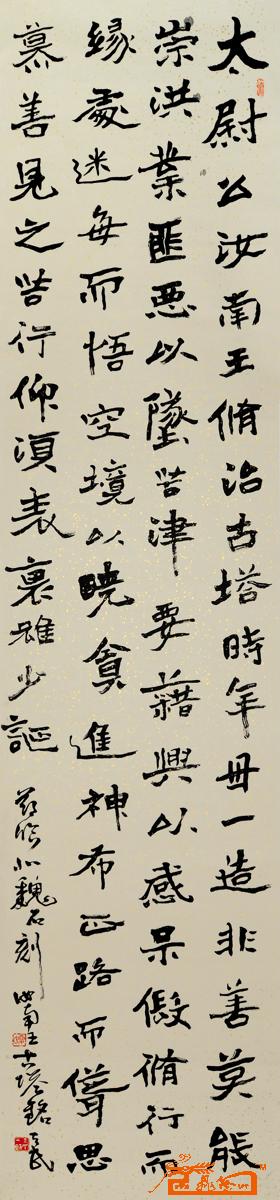 太尉公汝南王脩治古塔時年毋一造非善莫能
崇洪業匪惡以墬苦津要藉興以感果假脩行而
緣處迷每而悟空境以曉貪進神布正路而儕思
慕善見之苦行仰湏表裏雖少
節臨北魏石刻汝南王古塔銘